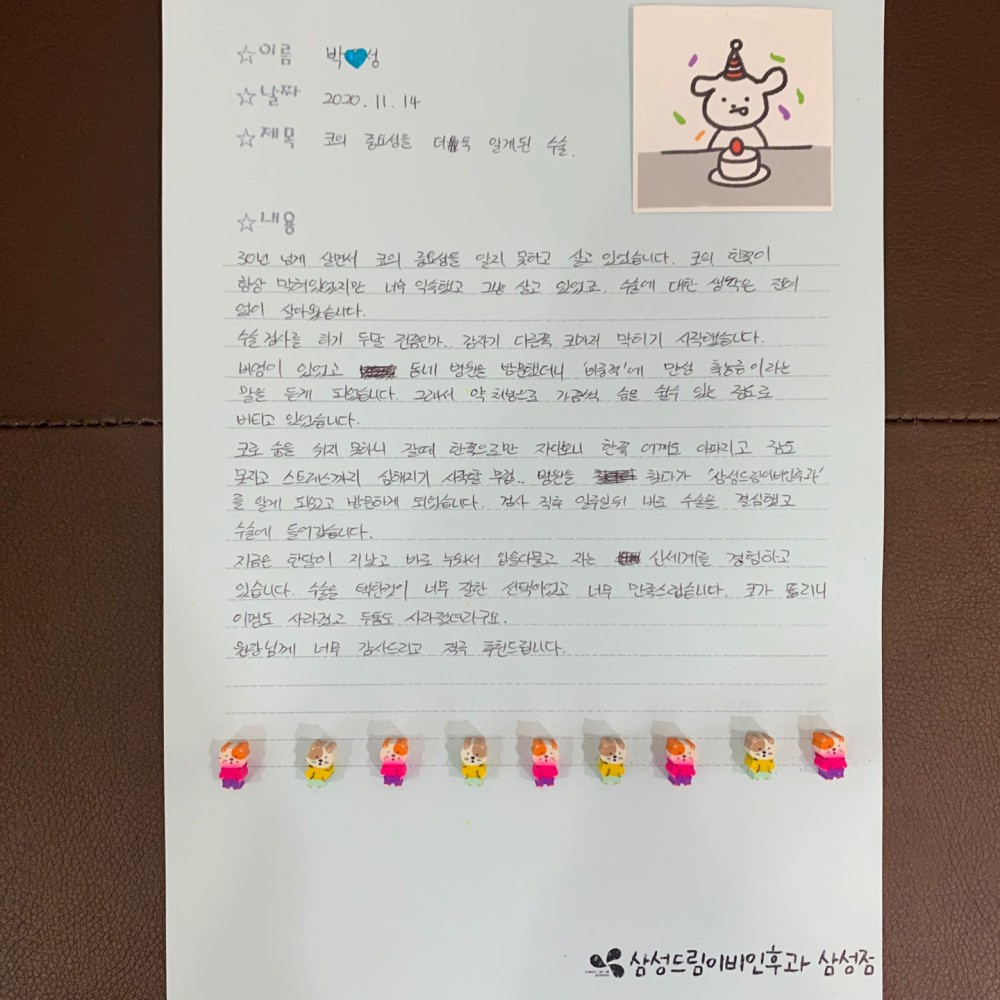 ☆이름 박💙성
☆날짜 2020.11.14
☆제목 코의 중요성을 더욱 알게된 수술.
☆내용
30년 넘게 살면서 코의 중요성을 알지 못하고 살고 있었습니다. 코의 한쪽이
항상 막혀있었지만 너무 익숙했고 그냥 살고 있었죠. 수술에 대한 생각은 전혀
없이 살아왔습니다.
수술 검사를 하기 두달 전쯤인가.. 갑자기 다른쪽 코까지 막히기 시작했습니다.
비염이 있었고 동네 병원을 방문했더니 '비중격'에 만성 축농증이라는
말을 듣게 되었습니다. 그래서 약 처방으로 가끔씩 숨은 쉴수 있는 정도로
버티고 있었습니다.
코로 숨을 쉬지 못하니 잘때 한쪽으로만 자다보니 한쪽 어깨도 아파지고 잠도
못자고 스트레스까지 심해지기 시작할 무렵.. 병원을 찾다가 '삼성드림이비인후과'
를 알게 되었고 방문하게 되었습니다. 검사 직후 일주일뒤 바로 수술을 결심했고
수술에 들어갔습니다.
지금은 한달이 지났고 바로 누워서 입을다물고 자는 신세계를 경험하고
있습니다. 수술을 택한것이 너무 잘한 선택이었고 너무 만족스럽습니다. 코가 뚫리니
이명도 사라졌고 두통도 사라졌더라구요.
원장님께 너무 감사드리고 적극 추천드립니다.
삼성드림이비인후과 삼성점